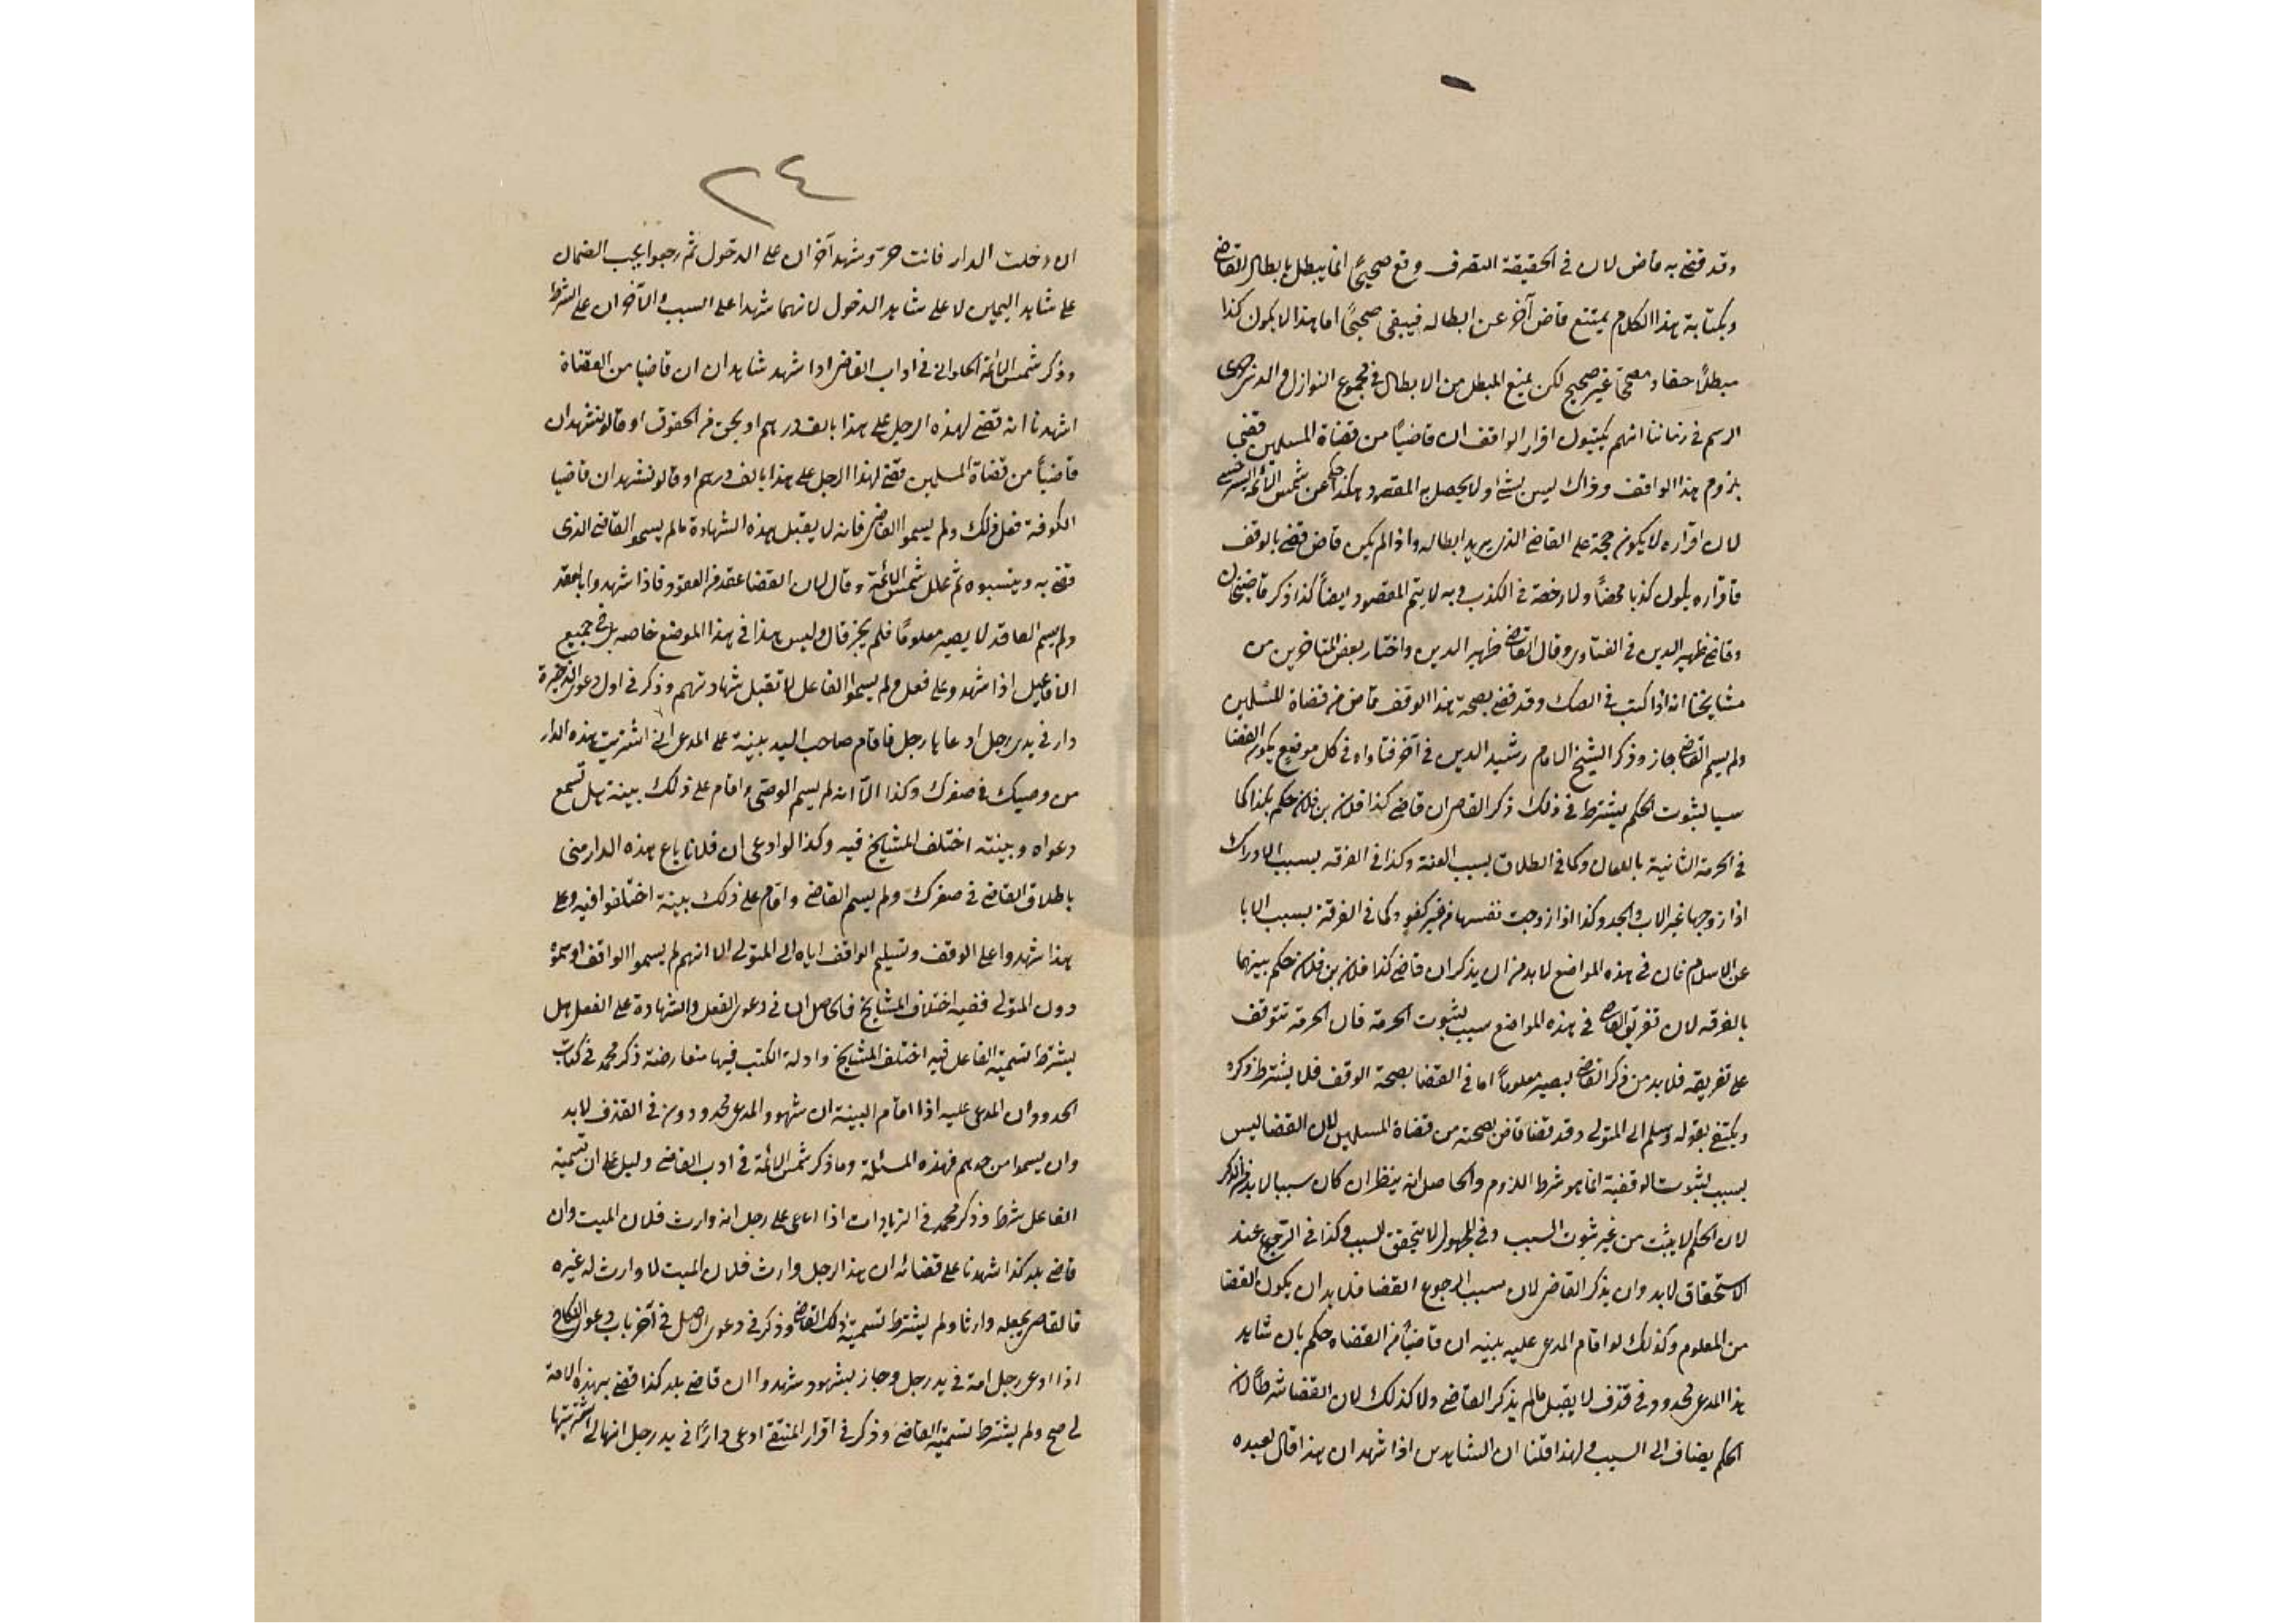 وقد قضى به قاض لان في الحقيقة التصرف وقع صحيحًا انما يبطل بابطال القاضي
وبكتابة هذا الكلام يمتنع قاض آخر عن ابطاله فيبقى صحيحًا اما هذا لا يكون كذا
مبطلًا حقا و مصححًا غير صحيح لكن يمنع المبطل من الابطال في مجموع النوازل
الرسم في زماننا انهم يكتبون اقرار الواقف ان قاضيًا من قضاة المسلمين قضى
بلزوم هذا الواقف وذاك ليس بشئ ولا يحصل به المقصود هكذا حكى عن شمس الائمة السرخسي
لان اقراره لا يكون حجة على القاضي الذي يريد ابطاله واذا لم يكن قاض قضى بالوقف
فاقراره يكون كذبا محضًا ولا رخصة في الكذب وبه لا يتم المقصود ايضًا كذا ذكر قاضيخان
وقاضى ظهير الدين في الفتاوى وقال القاضي ظهير الدين واختار بعض المتاخرين من
مشايخنا انه اذا كتب في الصك وقد قضى بصحة هذا الوقف قاض من قضاة المسلمين
ولم يسم القاضي جاز وذكر الشيخ الامام رشيد الدين في آخر فتاواه في كل موضع يكون القضا
سببا لثبوت الحكم يشترط في ذلك ذكر القاضي ان قاضى كذا فلان بن فلان حكم بكذا كما
في الحرمة الثانية باللعان وكما في الطلاق بسبب العنة وكذا في الفرقه بسبب الادراك
اذا زوجها غير الاب والجد وكذا اذا زوجت نفسها من غير كفو وكما في الفرقة بسبب الابا
عن الاسلام فان في هذه المواضع لا بد من ان يذكر ان قاضى كذا فلان بن فلان حكم بينهما
بالفرقه لان تفريق القاضي في هذه المواضع سبب لثبوت الحرمة فان الحرمة تتوقف
على تفريقه فلا بد من ذكر القاضي ليصير معلومًا اما في القضا بصحة الوقف فلا يشترط ذكره
ويكتفى بقوله وسلم الى المتولى وقد قضا قاض بصحته من قضاة المسلمين لان القضا ليس
بسبب لثبوت الوقفية انما هو شرط اللزوم والحاصل انه ينظر ان كان سببا لا بد من الذكر
لان الحكم لا يثبت من غير ثبوت السبب وفي المجهول لا يتحقق السبب وكذا في الرجوع عند
الاستحقاق لا بد وان يذكر القاضي لان سبب الرجوع القضا فلا بد ان يكون القضا
من المعلوم وكذلك لو اقام المدعى عليه بينه ان قاضيًا من القضاه حكم بان شاهد
هذا المدعى محدود في قذف لا يقبل مالم يذكر القاضي ولا كذلك لان القضا شرط لان
الحكم يضاف الى السبب ولهذا قلنا ان الشاهدين اذا شهد ان هذا قال لعبده
٢٤
ان دخلت الدار فانت حرّ وشهد آخران على الدخول ثم رجعوا يجب الضمان
على شاهد اليمين لا على شاهد الدخول لانهما شهدا على السبب والآخران على الشرط
وذكر شمس الائمة الحلواني في اداب القاضي اذا شهد شاهدان ان قاضيا من القضاة
اشهدنا انه قضى لهذه الرجل على هذا بالف درهم او بحق من الحقوق او قالوا نشهد ان
قاضيًا من قضاة المسلمين قضى لهذا الرجل على هذا بالف درهم او قالوا نشهد ان قاضيا
الكوفة فعل ذلك ولم يسموا القاضي فانه لا يقبل هذه الشهادة مالم يسموا القاضي الذي
قضى به وينسبوه ثم علل شمس الائمة وقال لان القضا عقد من العقود فاذا شهدوا بالعقد
ولم يسم العاقد لا يصير معلومًا فلم يجز قال وليس هذا في هذا الموضع خاصه بل في جميع
الافاعيل اذا شهدوا على فعل ولم يسموا الفاعل لا تقبل شهادتهم وذكر في اول دعوى الذخيرة
دار في يدى رجل ادعاها رجل فاقام صاحب اليد بينة على المدعى انى اشتريت هذه الدار
من وصيك في صغرك وكذا الّا انه لم يسم الوصى واقام على ذلك بينة هل تسمع
دعواه وبينته اختلف المشايخ فيه وكذا لو ادعى ان فلانا باع هذه الدار منى
باطلاق القاضي في صغرك ولم يسم القاضي واقام على ذلك بينة اختلفوا فيه وعلى
هذا شهدوا على الوقف وتسليم الواقف اياه الى المتولى الا انهم لم يسموا الواقف او سموه
دون المتولى ففيه اختلاف المشايخ فالحاصل ان في دعوى الفعل والشهادة على الفعل هل
يشترط تسمية الفاعل فيه اختلف المشايخ وادلة الكتب فيها متعارضة ذكر محمد في كتاب
الحدود ان المدعى عليه اذا اقام البينة ان شهود المدعى محدودون في القذف لا بد
وان يسموا من حدهم فهذه المسئلة وما ذكر شمس الائمة في ادب القاضي دليل على ان تسمية
الفاعل شرط وذكر محمد في الزيادات اذا ادعى على رجل انه وارث فلان الميت وان
قاضى بلد كذا اشهدنا على قضائه ان هذا الرجل وارث فلان الميت لا وارث له غيره
فالقاضي يجعله وارثا ولم يشترط تسمية ذلك القاضي وذكر في دعوى الاصل في آخر باب دعوى النكاح
اذا ادعى رجل امة في يد رجل وجاز بشهود شهدوا ان قاضى بلد كذا قضى بهذه الامة
لى صح ولم يشترط تسمية القاضي وذكر في اقرار المنتقى ادعى دارًا في يد رجل انها لى اشتريتها